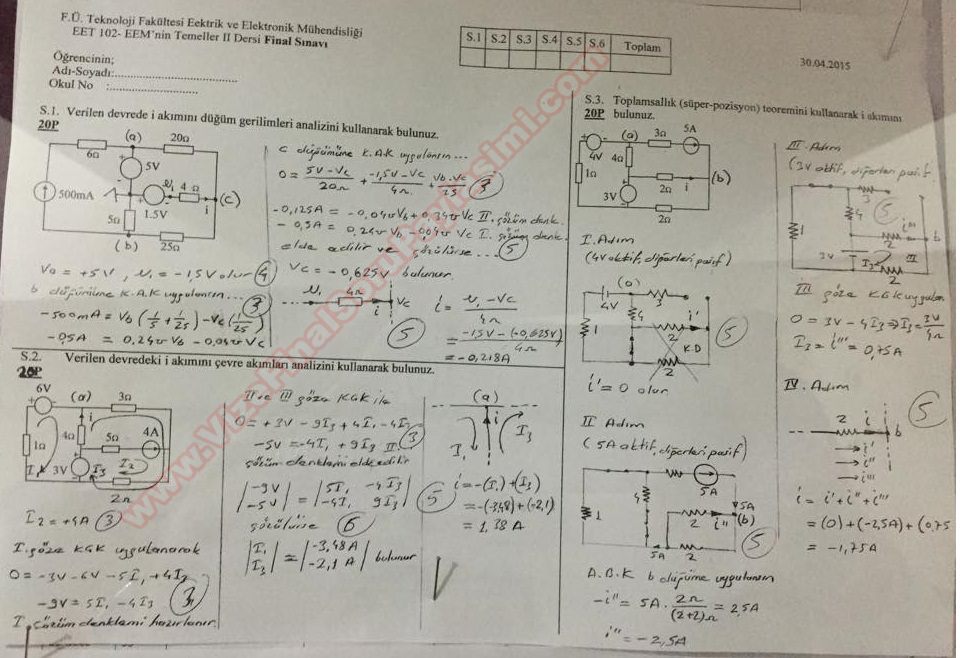 F.Ü. Teknoloji Fakültesi Eektrik ve Elektronik Mühendisliği
EET 102- EEM'nin Temeller II Dersi Final Sınavı
S.1 S.2 S.3 S.4 S.5 S.6 Toplam
30.04.2015
Öğrencinin;
Adı-Soyadı:
Okul No :
S.1. Verilen devrede i akımını düğüm gerilimleri analizini kullanarak bulunuz.
20P
(a) 20Ω
6Ω
5V
500mA
υ₁ 4 Ω
i (c)
1.5V
5Ω
(b) 25Ω
Va = +5V, υ₁ = -1.5V olur 4
b düğümüne K.A.K uygulansın...
3
-500mA = Vb (1/5 + 1/25) - Vc (1/25)
-0,5A = 0,24υ Vb - 0,04υ Vc
c düğümüne K.A.K uygulansın...
0 = 5V-Vc/20Ω + -1,5V-Vc/4Ω + Vb-Vc/25 3
-0,125A = -0,04υ Vb + 0,34υ Vc II. çözüm denk.
-0,5A = 0,24υ Vb - 0,04υ Vc I. çözüm denk.
elde edilir ve çözülürse... 5
Vc = -0,625V bulunur
υ₁ 4Ω i Vc
5
i = υ₁ - Vc / 4Ω
= -1,5V - (-0,625V) / 4Ω
= -0,218A
S.2. Verilen devredeki i akımını çevre akımları analizini kullanarak bulunuz.
20P
6V (a) 3Ω
i
1Ω 4Ω 5Ω 4A
I₁ 3V I₃ I₂
2Ω
I₂ = +4A 3
I. göze KGK uygulanarak
0 = -3V - 6V - 5I₁ + 4I₃
-9V = 5I₁ - 4I₃ 3
I. çözüm denklemi hazırlanır.
II ve III göze KGK ile
0 = +3V - 9I₃ + 4I₁ - 4I₂
-5V = -4I₁ + 9I₃ II 3
çözüm denklemi elde edilir
|-9V -5V| = |5I₁ -4I₃ -4I₁ 9I₃| 5
çözülürse 6
|I₁ I₃| = |-3,48A -2,1 A| bulunur
(a)
I₁ i I₃
i = -(I₁) + (I₃)
= -(-3,48) + (-2,1)
= 1,38 A
S.3. Toplamsallık (süper-pozisyon) teoremini kullanarak i akımını
20P bulunuz.
(a) 3Ω 5A
4V 4Ω
1Ω 2Ω i (b)
3V
2Ω
I. Adım
(4V aktif, diğerleri pasif)
(a)
4V 3
1 4 i'
2
K.D
2
5
i' = 0 olur
II Adım
(5A aktif, diğerleri pasif)
(a) 3
5A
1 4
5A
2 i'' (b)
5A 2
5
A.B.K b düğüme uygulansın
-i'' = 5A . 2Ω/(2+2)Ω = 2,5A
i'' = -2,5A
III. Adım
(3V aktif, diğerleri pasif)
3
5
1 4 i'''
2 b
3V I₃ III
2
III göze KGK uygulan
0 = 3V - 4I₃ ⇒ I₃ = 3V/4Ω
I₃ = i''' = 0,75A
IV. Adım
5
2 i b
i'
i''
i'''
i = i' + i'' + i'''
= (0) + (-2,5A) + (0,75
= -1,75A